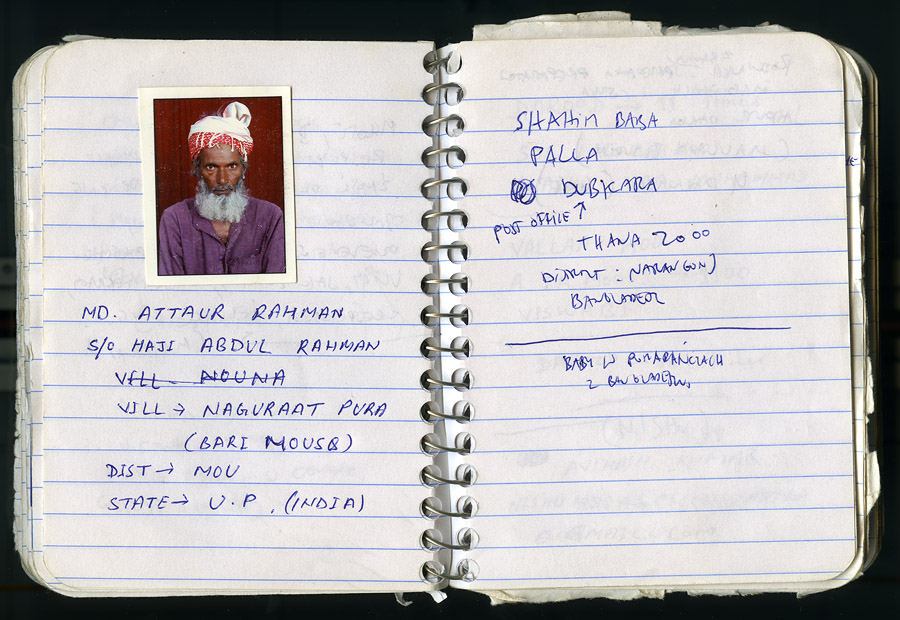 MD. ATTAUR RAHMAN
S/O HAJI ABDUL RAHMAN
VILL - NOUNA
VILL → NAGURAAT PURA
(BARI MOUSQ)
DIST → MOU
STATE → U.P. (INDIA)
SHAHIN BABA
PALLA
DUBKARA
POST OFFICE ↑
THANA 2000
DISTRICT : (NARANGONJ
BANGLADESH
BABY